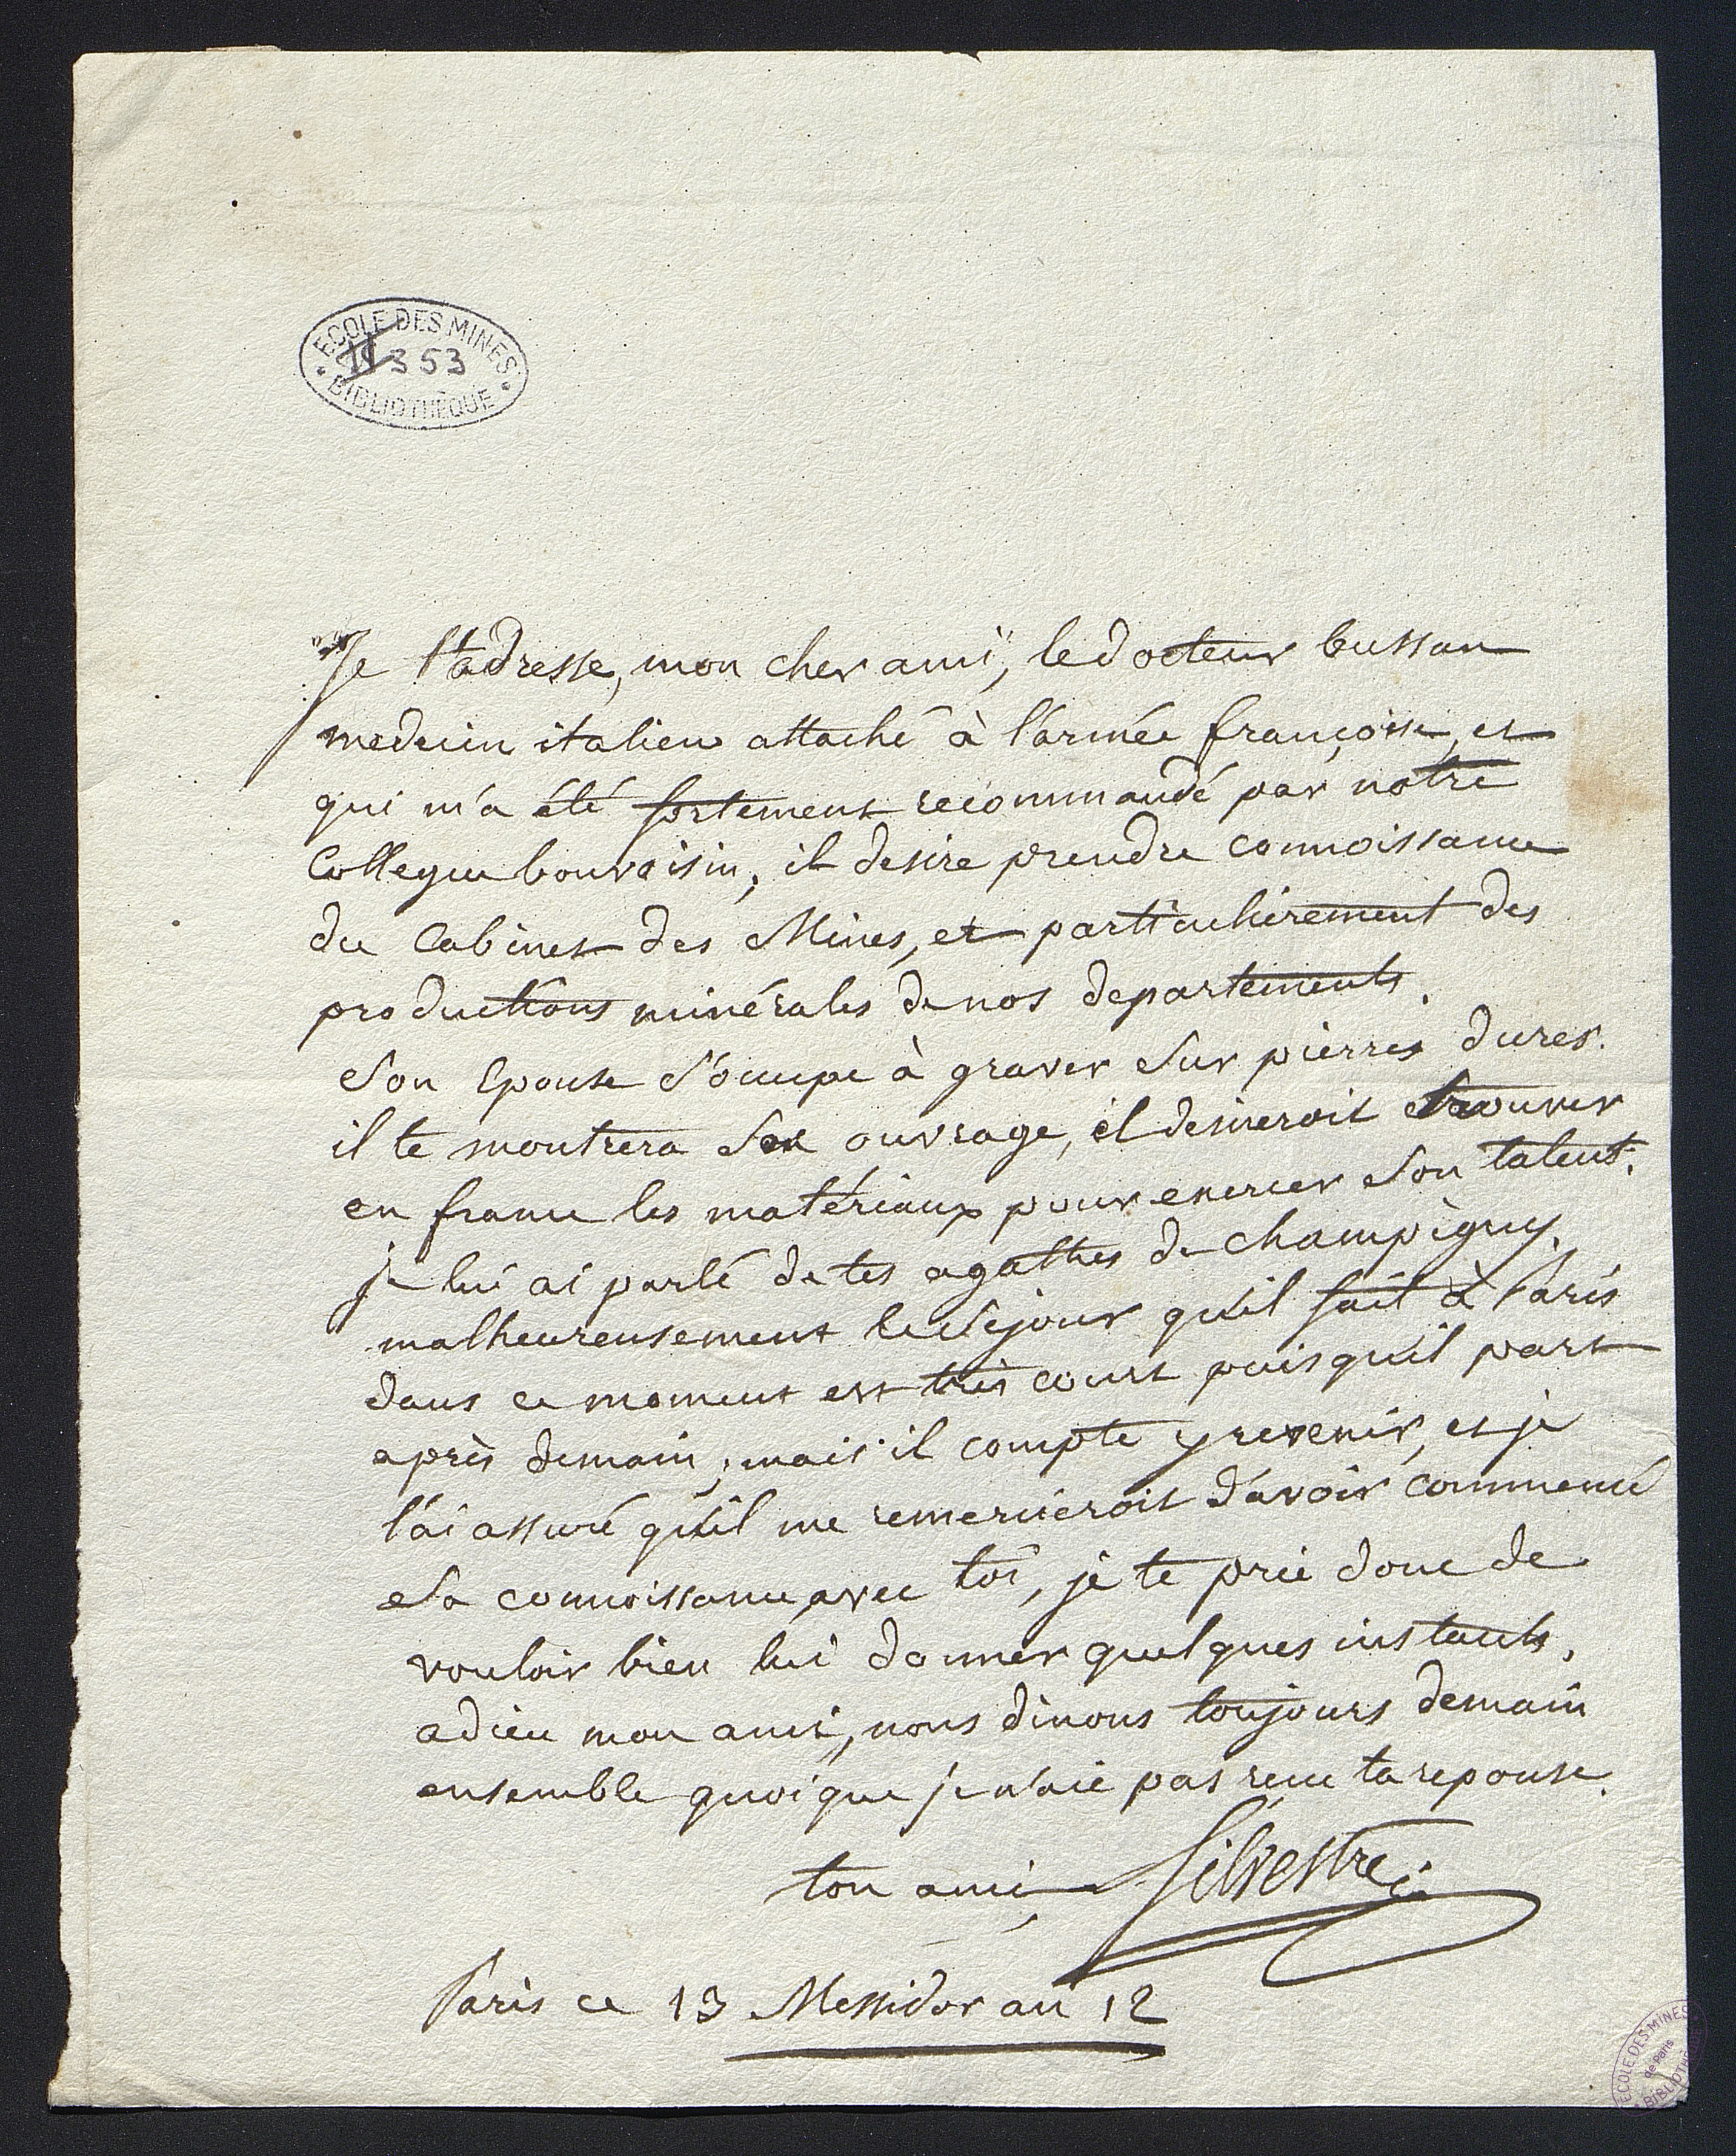 ECOLE DES MINES
353
BIBLIOTHÈQUE
Je t'adresse, mon cher ami, le docteur bussan
medecin italien attaché à l'armée françoise, et
qui m'a été fortement recommandé par notre
Collegue bonvoisin, il desire prendre connoissance
du Cabinet des Mines, et particulièrement des
productions minérales de nos departements.
Son Epouse s'occupe à graver sur pierres dures.
il te montrera son ouvrage, il desireroit trouver
en france les matériaux pour exercer son talent.
je lui ai parlé de tes agathes de champigny.
malheureusement le séjour qu'il fait à Paris
dans ce moment est très court puisqu'il part
après demain; mais il compte y revenir, et je
l'ai assuré qu'il me remercieroit d'avoir commencé
sa connoissance avec toi, je te prie donc de
vouloir bien lui donner quelques instants,
adieu mon ami, nous dinons toujours demain
ensemble quoique je n'aie pas recu ta reponse.
ton ami Silvestre
Paris ce 13 Messidor an 12
ECOLE DES MINES
de Paris
BIBLIOTHÈQUE